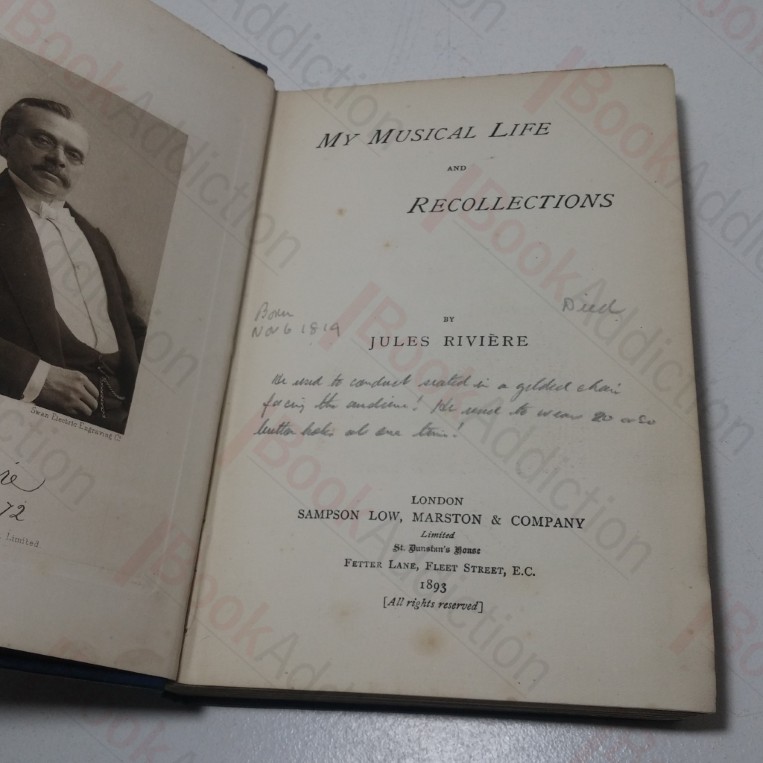 Swan Electric Engraving Cº
72
Limited
MY MUSICAL LIFE
AND
RECOLLECTIONS
Born
Nov 6 1819
Died
BY
JULES RIVIÈRE
He used to conduct seated in a gilded chair
facing the audience! He used to wear 20 or so
button holes at one time!
LONDON
SAMPSON LOW, MARSTON & COMPANY
Limited
St. Dunstan's House
FETTER LANE, FLEET STREET, E.C.
1893
[All rights reserved]
BookAddiction